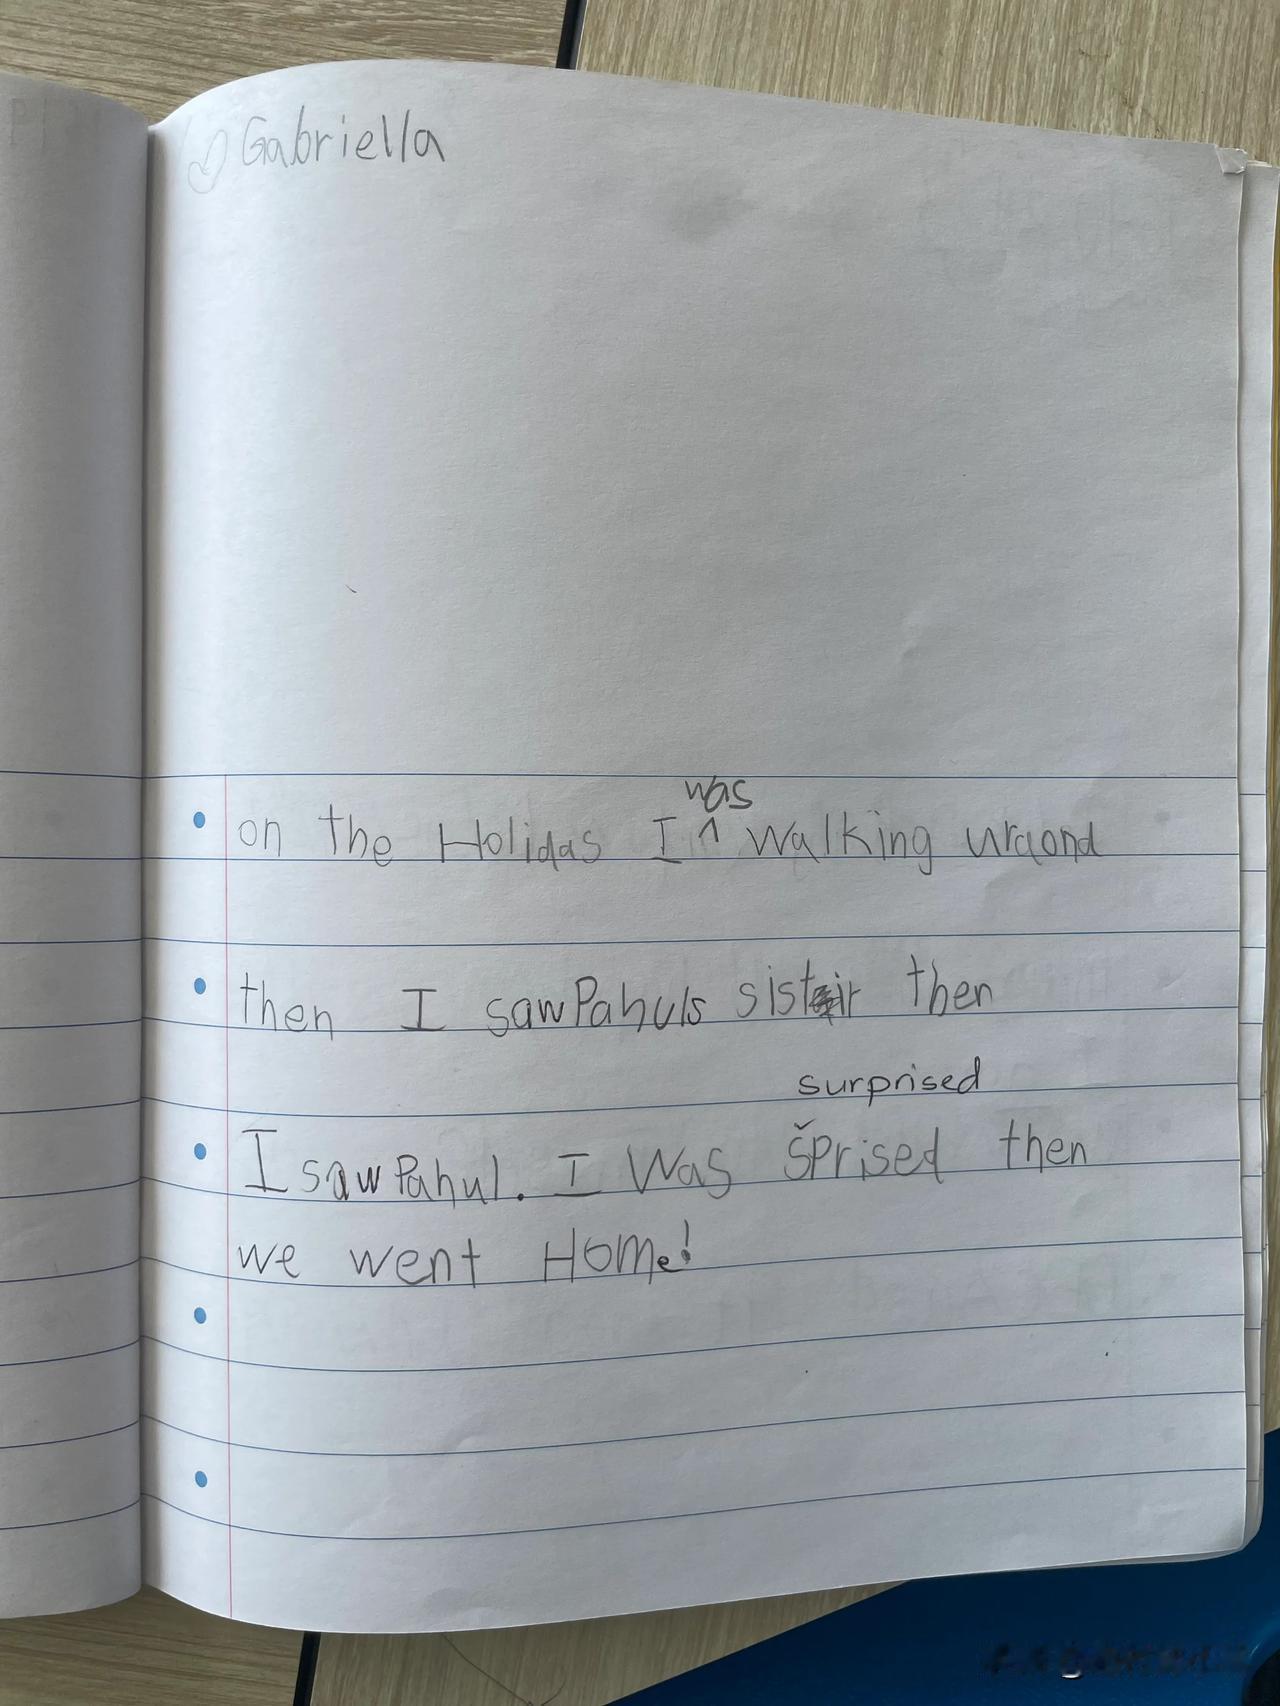 Gabriella
was
on the Holidas I ^ walking uraond
then I saw Pahuls sistir then
surprised
I saw Pahul. I Was sprised then
we went Home!